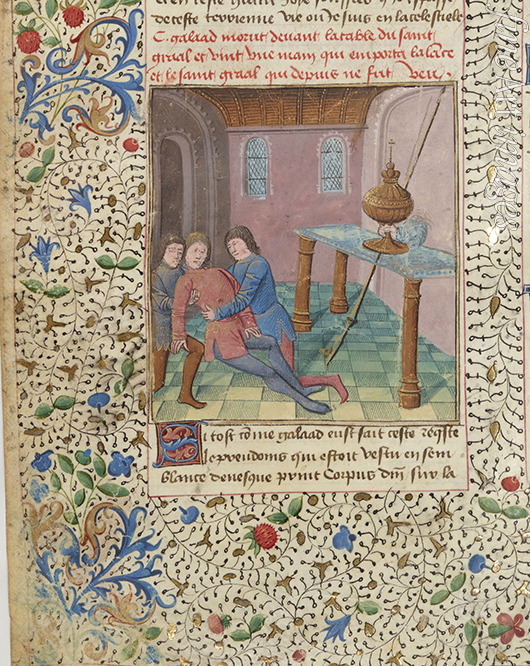 de ceste terrienne vie ou je suis en la celestielle
C. galaad morut devant la table du saint
graal et vint vne main qui emporta la lance
et le saint graal qui depuis ne fut veu.
Si tost cõme galaad eust fait ceste reqste
le preudoms qui estoit vestu en sem
blance devesque print Corpus dm̄ sur la